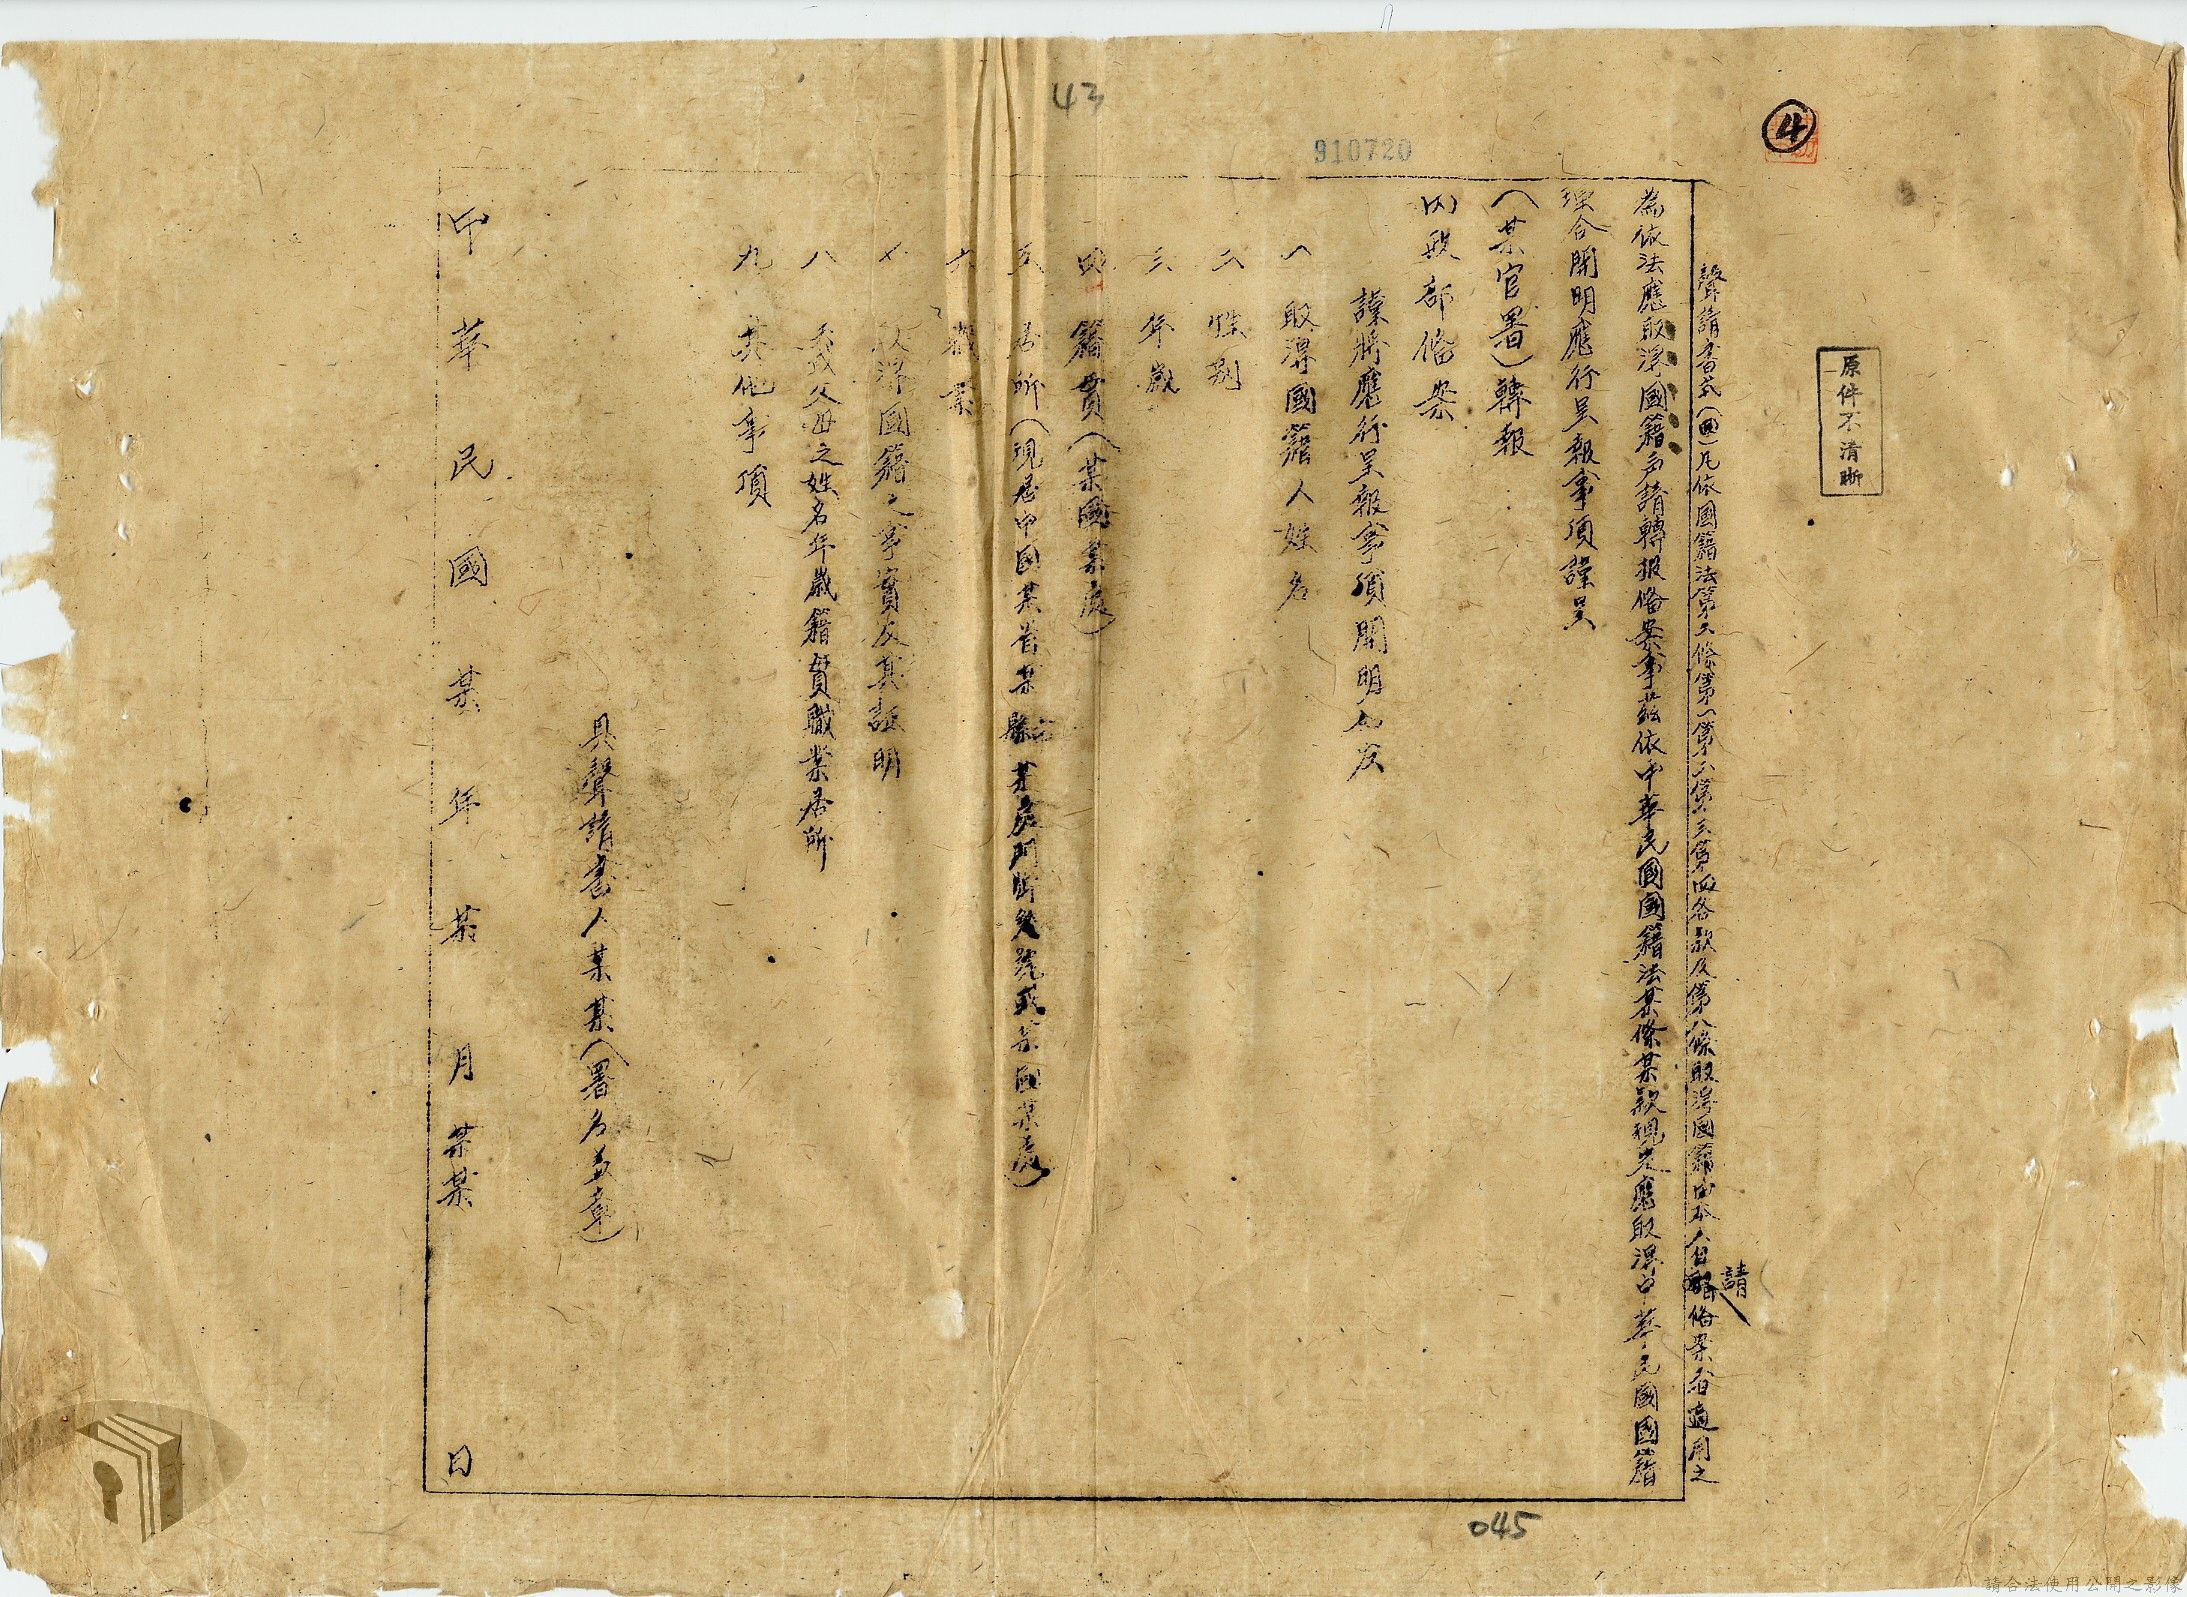 43
910720
④
原件不清晰
聲請書式(四)凡依國籍法第二條第一第二第三第四各款及第八條取得國籍由本人自請備案者適用之
為依法應取得國籍聲請轉報備案事茲依中華民國國籍法某條某款規定應取得中華民國國籍
理合開明應行呈報事項謹呈
(某官署)轉報
內政部備案
謹將應行呈報事項開明如左
一 取得國籍人姓名
二 性別
三 年歲
四 籍貫(某國某處)
五 居所(現居中國某省某縣市某處門牌幾號或某國某處)
六 職業
七 取得國籍之事實及其證明
八 父母之姓名年歲籍貫職業居所
九 其他事項
具聲請書人某某(署名蓋章)
中華民國某年某月某某日
045
請合法使用公開之影像